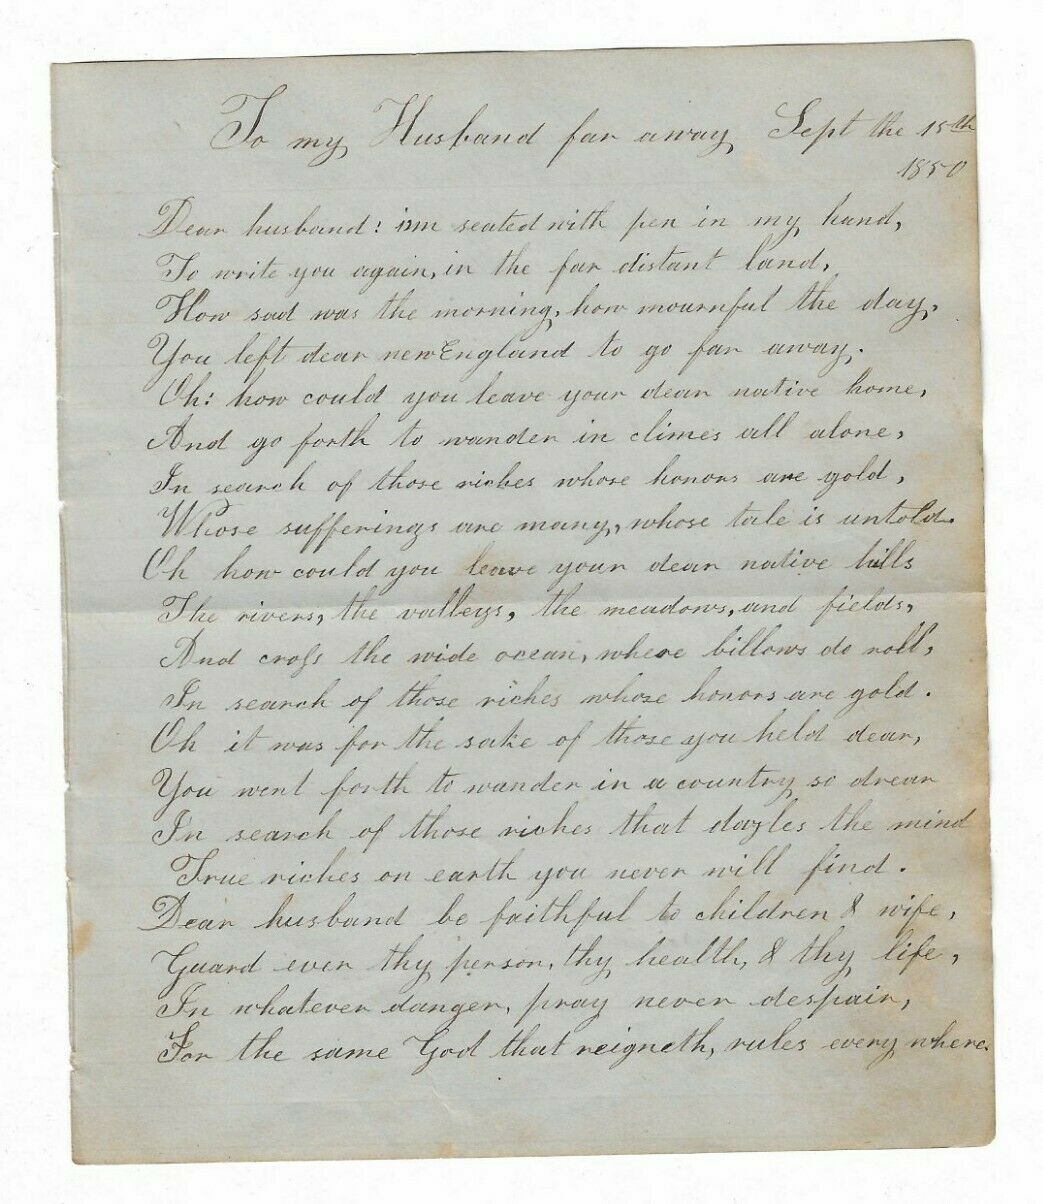 To my Husband far away, Sept the 15th
1850
Dear husband: im seated with pen in my hand,
To write you again, in the far distant land,
How sad was the morning, how mournful the day,
You left dear new England to go far away.
Oh: how could you leave your dear native home,
And go forth to wander in climes all alone,
In search of those riches whose honors are gold,
Whose sufferings are many, whose tale is untold.
Oh how could you leave your dear native hills
The rivers, the valleys, the meadows, and fields,
And cross the wide ocean, where billows do roll,
In search of those riches whose honors are gold.
Oh it was for the sake of those you held dear,
You went forth to wander in a country so drear
In search of those riches that dazles the mind
True riches on earth you never will find.
Dear husband be faithful to children & wife,
Guard ever thy person, thy health, & thy life,
In whatever danger, pray never despair,
For the same God that reigneth, rules every where.